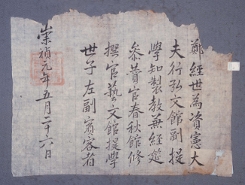 鄭經世為資憲大
夫行弘文館副提
學知製教兼經筵
參贊官春秋館修
撰官藝文館提學
世子左副賓客者
崇禎元年五月二十六日